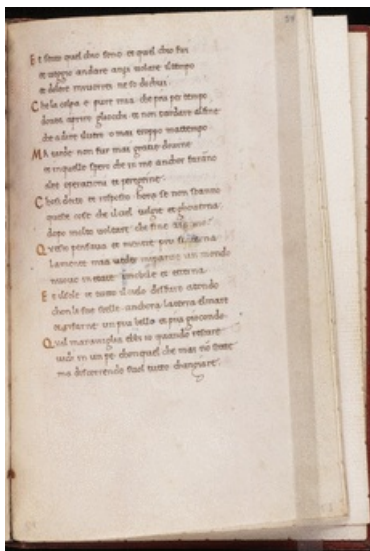 Et sento quel chio sono et quel chio fui
et veggio andare anzi volare il tempo
et dolere mivorrei ne so dichui
Che la colpa e pure mia che piu per tempo
dovea aprire gliocchi et non tardare alfine
che adire iluero omai troppo mattempo
Ma tarde non fur mai gratie diuine
et inquelle spero che in me anchor faranno
alte operationi et peregrine
Chosi decto et risposto hora se non stanno
queste cose che ilciel uolge et ghouerna
dopo molto uoltare che fine
Questo pensaua et mentre piu
Lamente mia un mondo
nuouo in etate imobile et eterna
Et ilsole et tutto ilcielo disfare atondo
chon le sue stelle anchora laterra elmare
et rifarne un piu bello et piu giocondo
Qual marauiglia ebbi io quando restare
uidi in un pe chonquel che mai nō stette
ma discorrendo suol tutto changiare